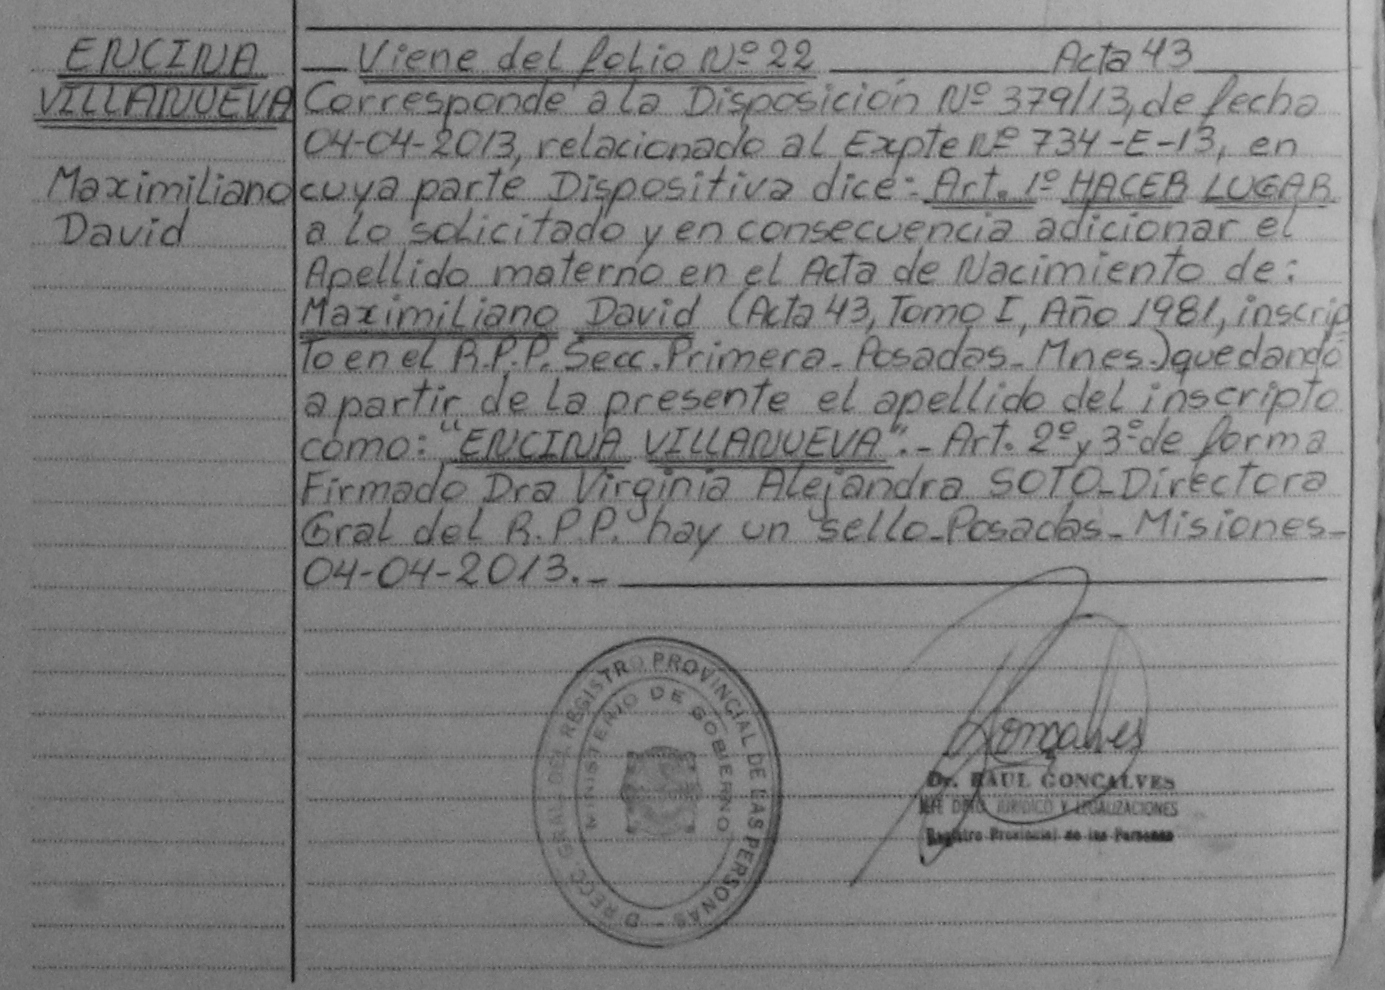 ENCINA
VILLANUEVA
Maximiliano
David
Viene del folio Nº 22 Acta 43
Corresponde a la Disposición Nº 379/13, de fecha
04-04-2013, relacionado al Expte Nº 734-E-13, en
cuya parte Dispositiva dice: Art. 1º HACER LUGAR
a lo solicitado y en consecuencia adicionar el
Apellido materno en el Acta de Nacimiento de:
Maximiliano David (Acta 43, Tomo I, Año 1981, inscrip
to en el R.P.P. Secc. Primera - Posadas - Mnes.) quedando
a partir de la presente el apellido del inscripto
como: "ENCINA VILLANUEVA".- Art. 2º y 3º de forma
Firmado Dra Virginia Alejandra SOTO - Directora
Gral del R.P.P. hay un sello - Posadas - Misiones -
04-04-2013.-
DIRECC. GRAL. DEL REGISTRO PROVINCIAL DE LAS PERSONAS -
MINISTERIO DE GOBIERNO
Gonçalves
Dr. RAUL GONCALVES
JEFE DPTO. JURIDICO Y LEGALIZACIONES
Registro Provincial de las Personas